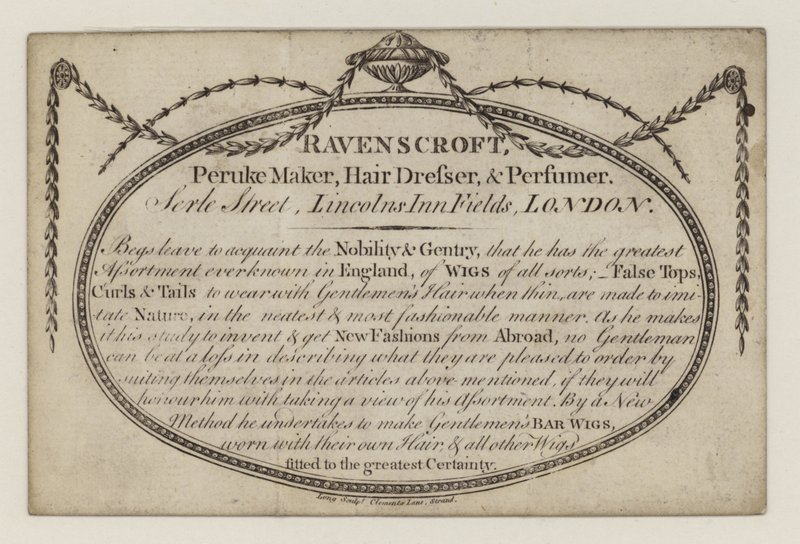 RAVENSCROFT,
Peruke Maker, Hair Dreſser, & Perfumer.
Serle Street, Lincolns Inn Fields, LONDON.
Begs leave to acquaint the Nobility & Gentry, that he has the greatest
Aſsortment ever known in England, of WIGS of all sorts; _ False Tops,
Curls & Tails to wear with Gentlemen's Hair when thin, are made to imi-
tate Nature, in the neatest & most fashionable manner. As he makes
it his study to invent & get New Fashions from Abroad, no Gentleman
can be at a loſs in describing what they are pleased to order by
suiting themselves in the articles above mentioned, if they will
honour him with taking a view of his Aſsortment. By a New
Method he undertakes to make Gentlemen's BAR WIGS,
worn with their own Hair, & all other Wigs
fitted to the greatest Certainty.
Long Sculpt. Clements Lane, Strand.